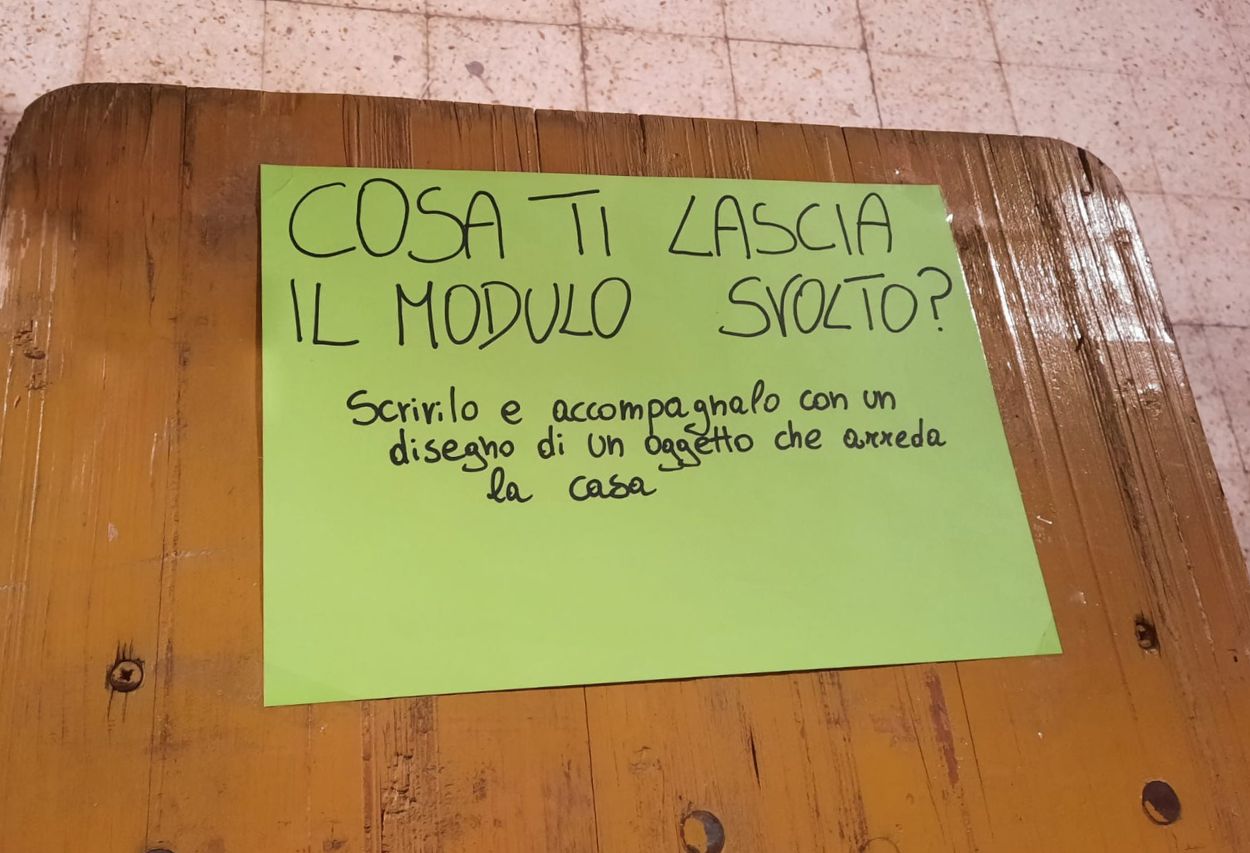 COSA TI LASCIA
IL MODULO SVOLTO?
Scrivilo e accompagnalo con un
disegno di un oggetto che arreda
la casa